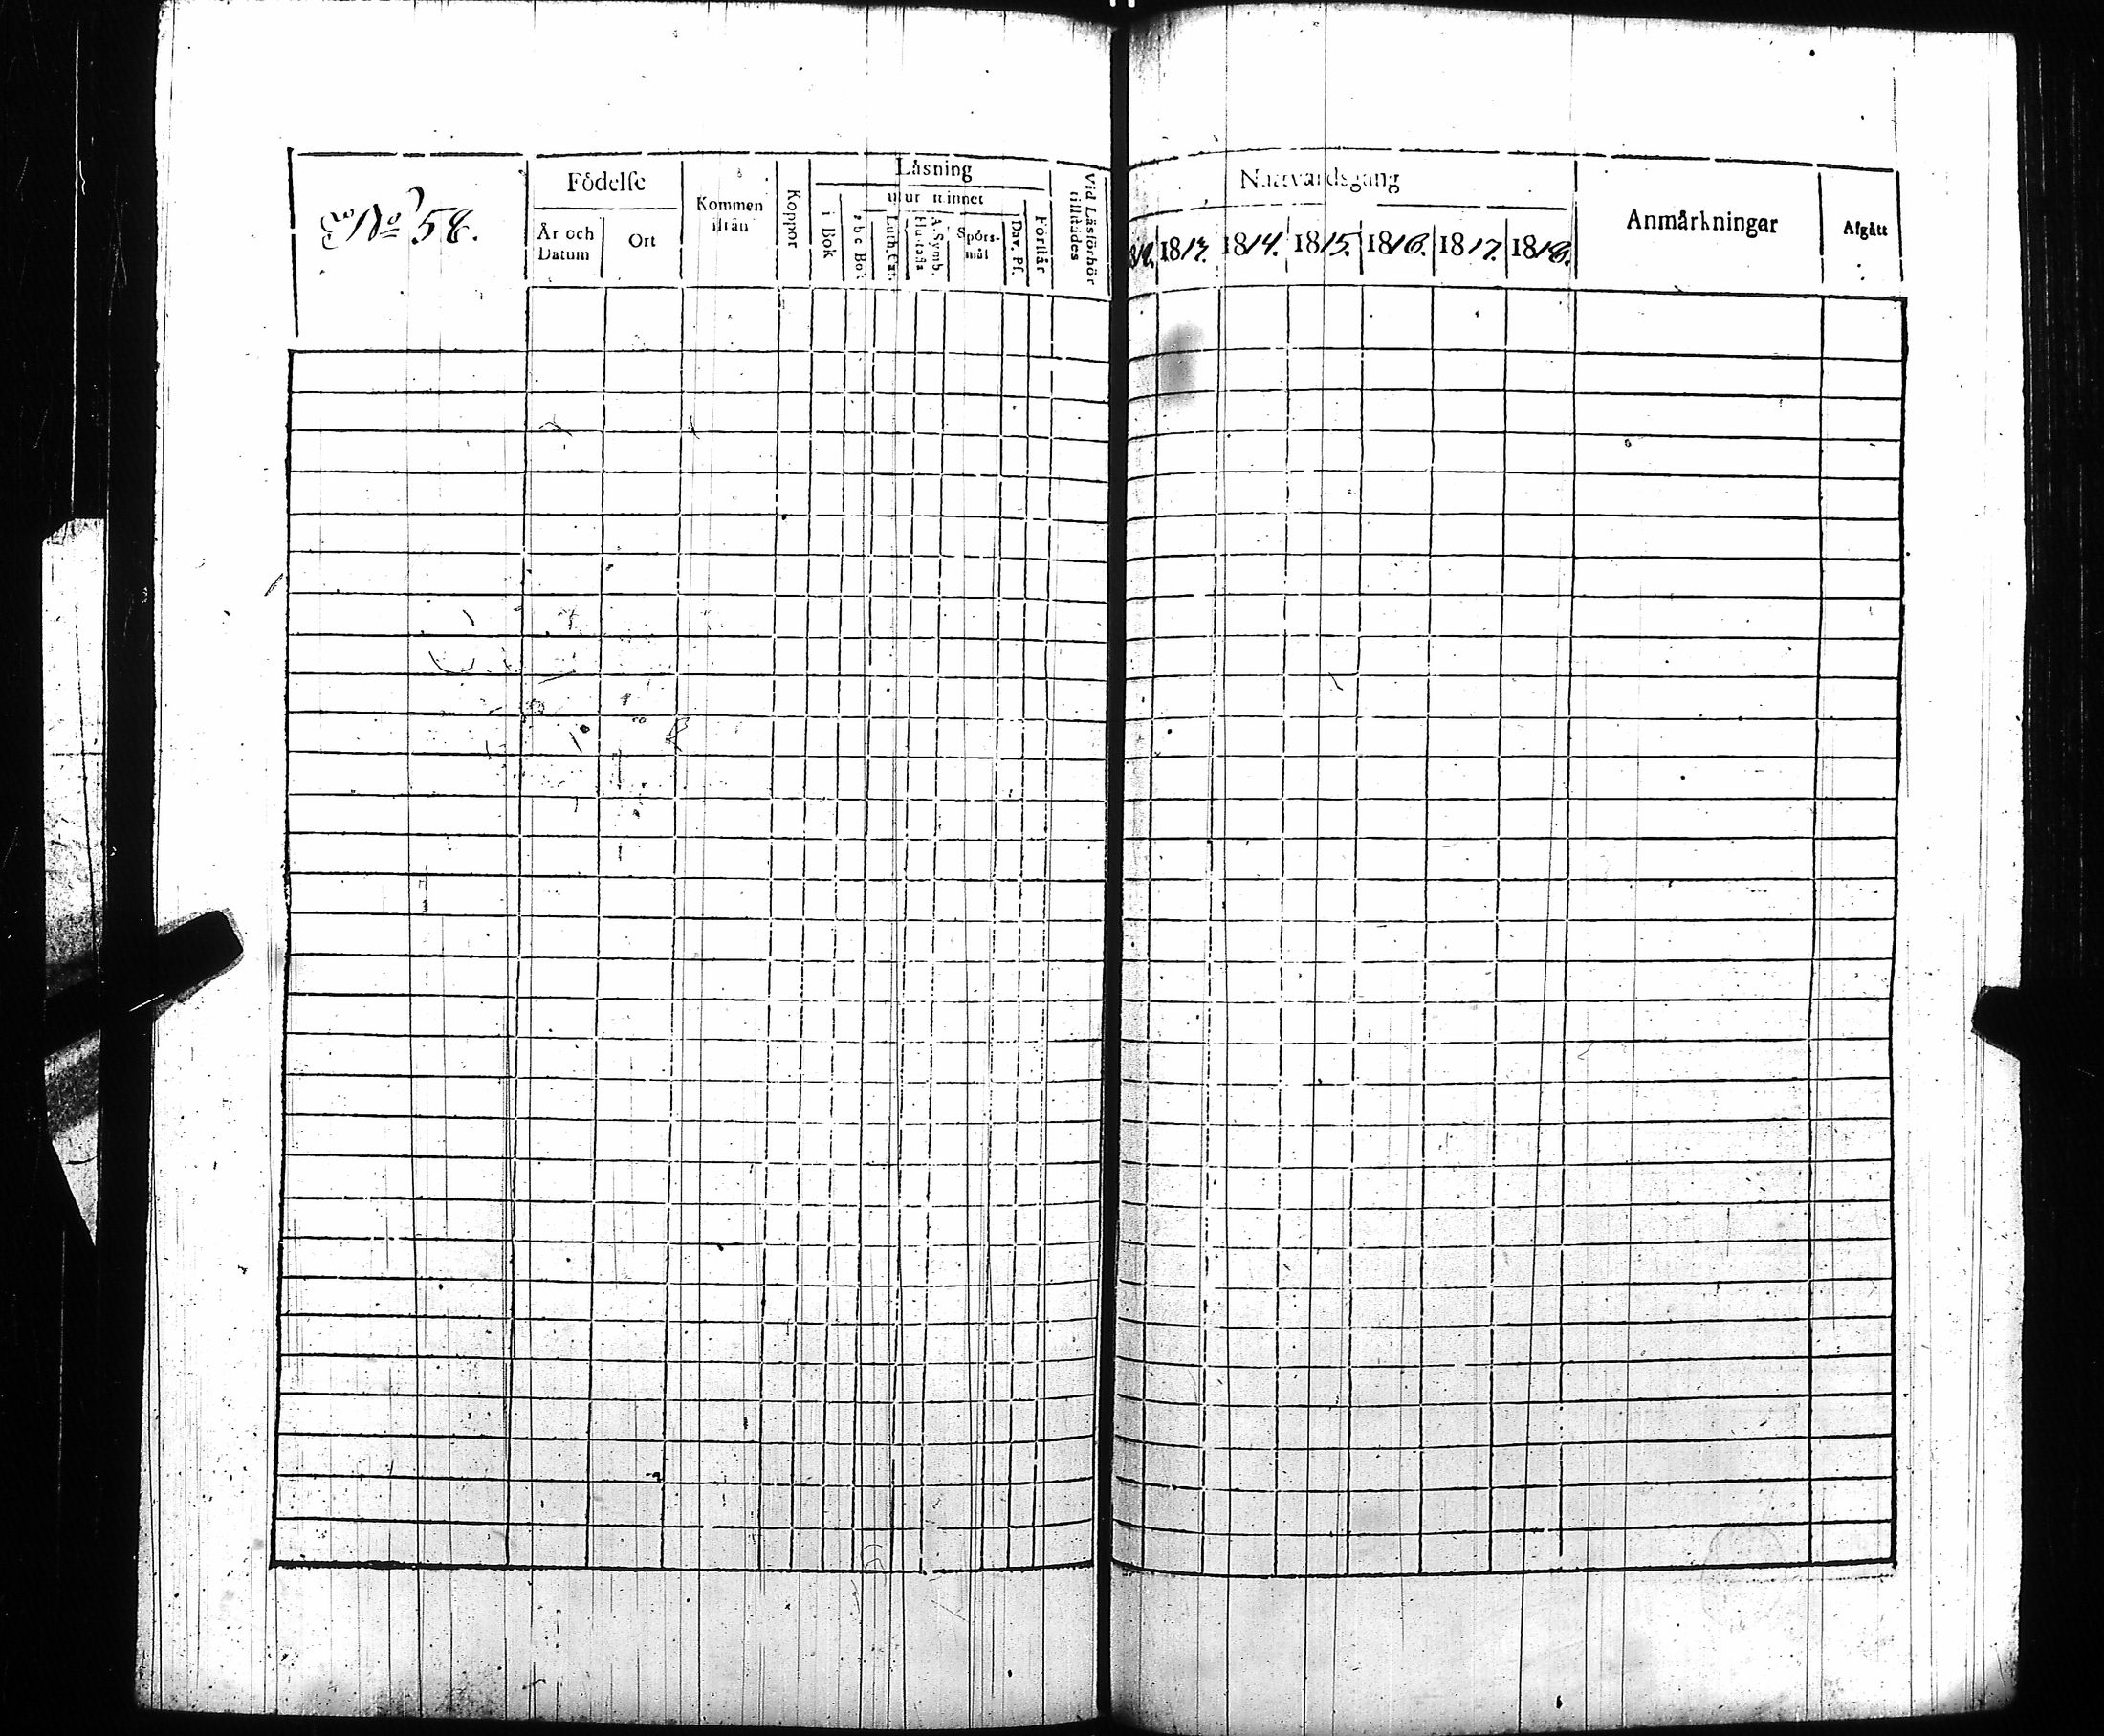 No 58.
Födelse
År och Datum
Ort
Kommen ifrån
Koppor
Läsning
i Bok
utur minnet
abc Bok
Luth. Cat.
Hustafla
A. Symb.
Spörs-mål
Dav. Ps.
Förstår
Vid Läsförhör tillstädes
Nattvardsgång
1813.
1814.
1815.
1816.
1817.
1818.
Anmärkningar
Afgått